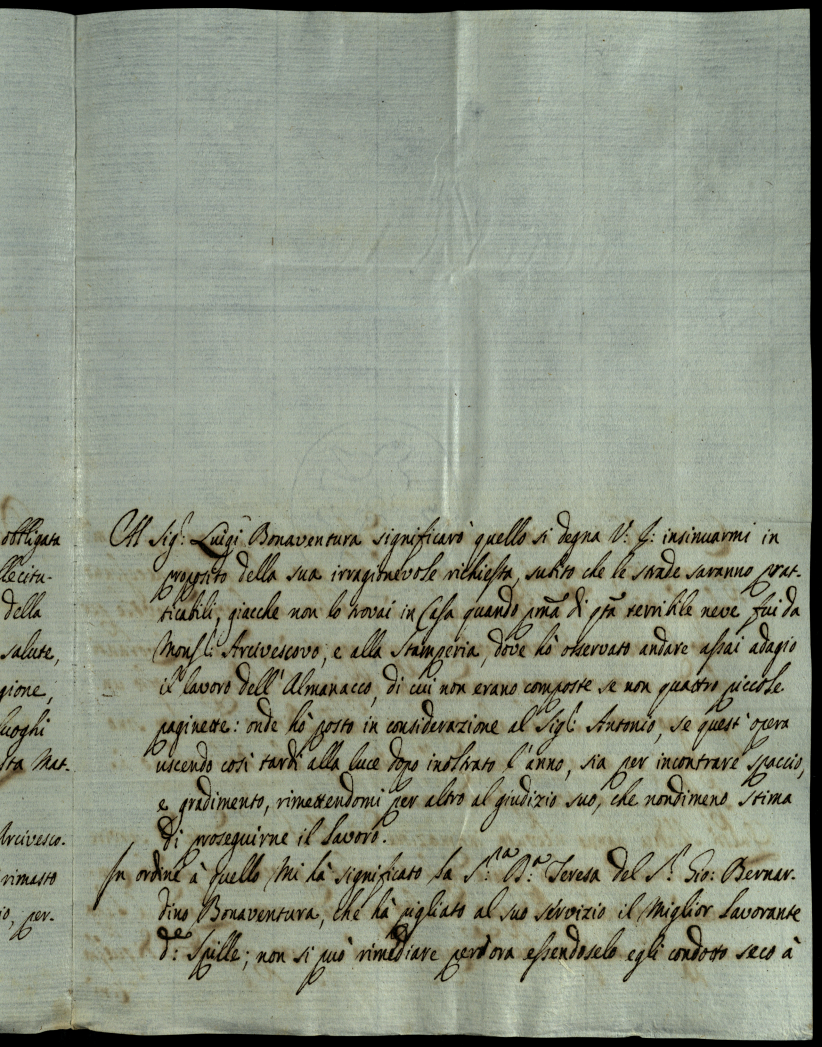 obbligata
llecitu-
della
salute,
gione,
luoghi
sta Mat.
Arcivesco.
rimasto
io, per.
Al Sig.r Luigi Bonaventura significarò quello si degna V: S: insinuarmi in
proposito della sua irragionevole richiesta, subito che le strade saranno prat-
ticabili, giacche non lo trovai in Casa quando pma di qta terribile neve fui da
Mons.r Arcivescovo, e alla Stamperia, dove hò osservato andare assai adagio
il lavoro dell'Almanacco, di cui non erano composte se non quattro piccole
paginette: onde hò posto in considerazione al Sig.r Antonio, se quest'opera
uscendo così tardi alla luce dopo inoltrato l'anno, sia per incontrare spaccio,
e gradimento, rimettendomi per altro al giudizio suo, che nondimeno stima
di proseguirne il lavoro.
In ordine à quello mi hà significato la S.ra B.a Teresa del S.r Gio: Bernar-
dino Bonaventura, che hà pigliato al suo servizio il miglior Lavorante
de: Spille; non si può rimediare perora essendoselo egli condotto seco à